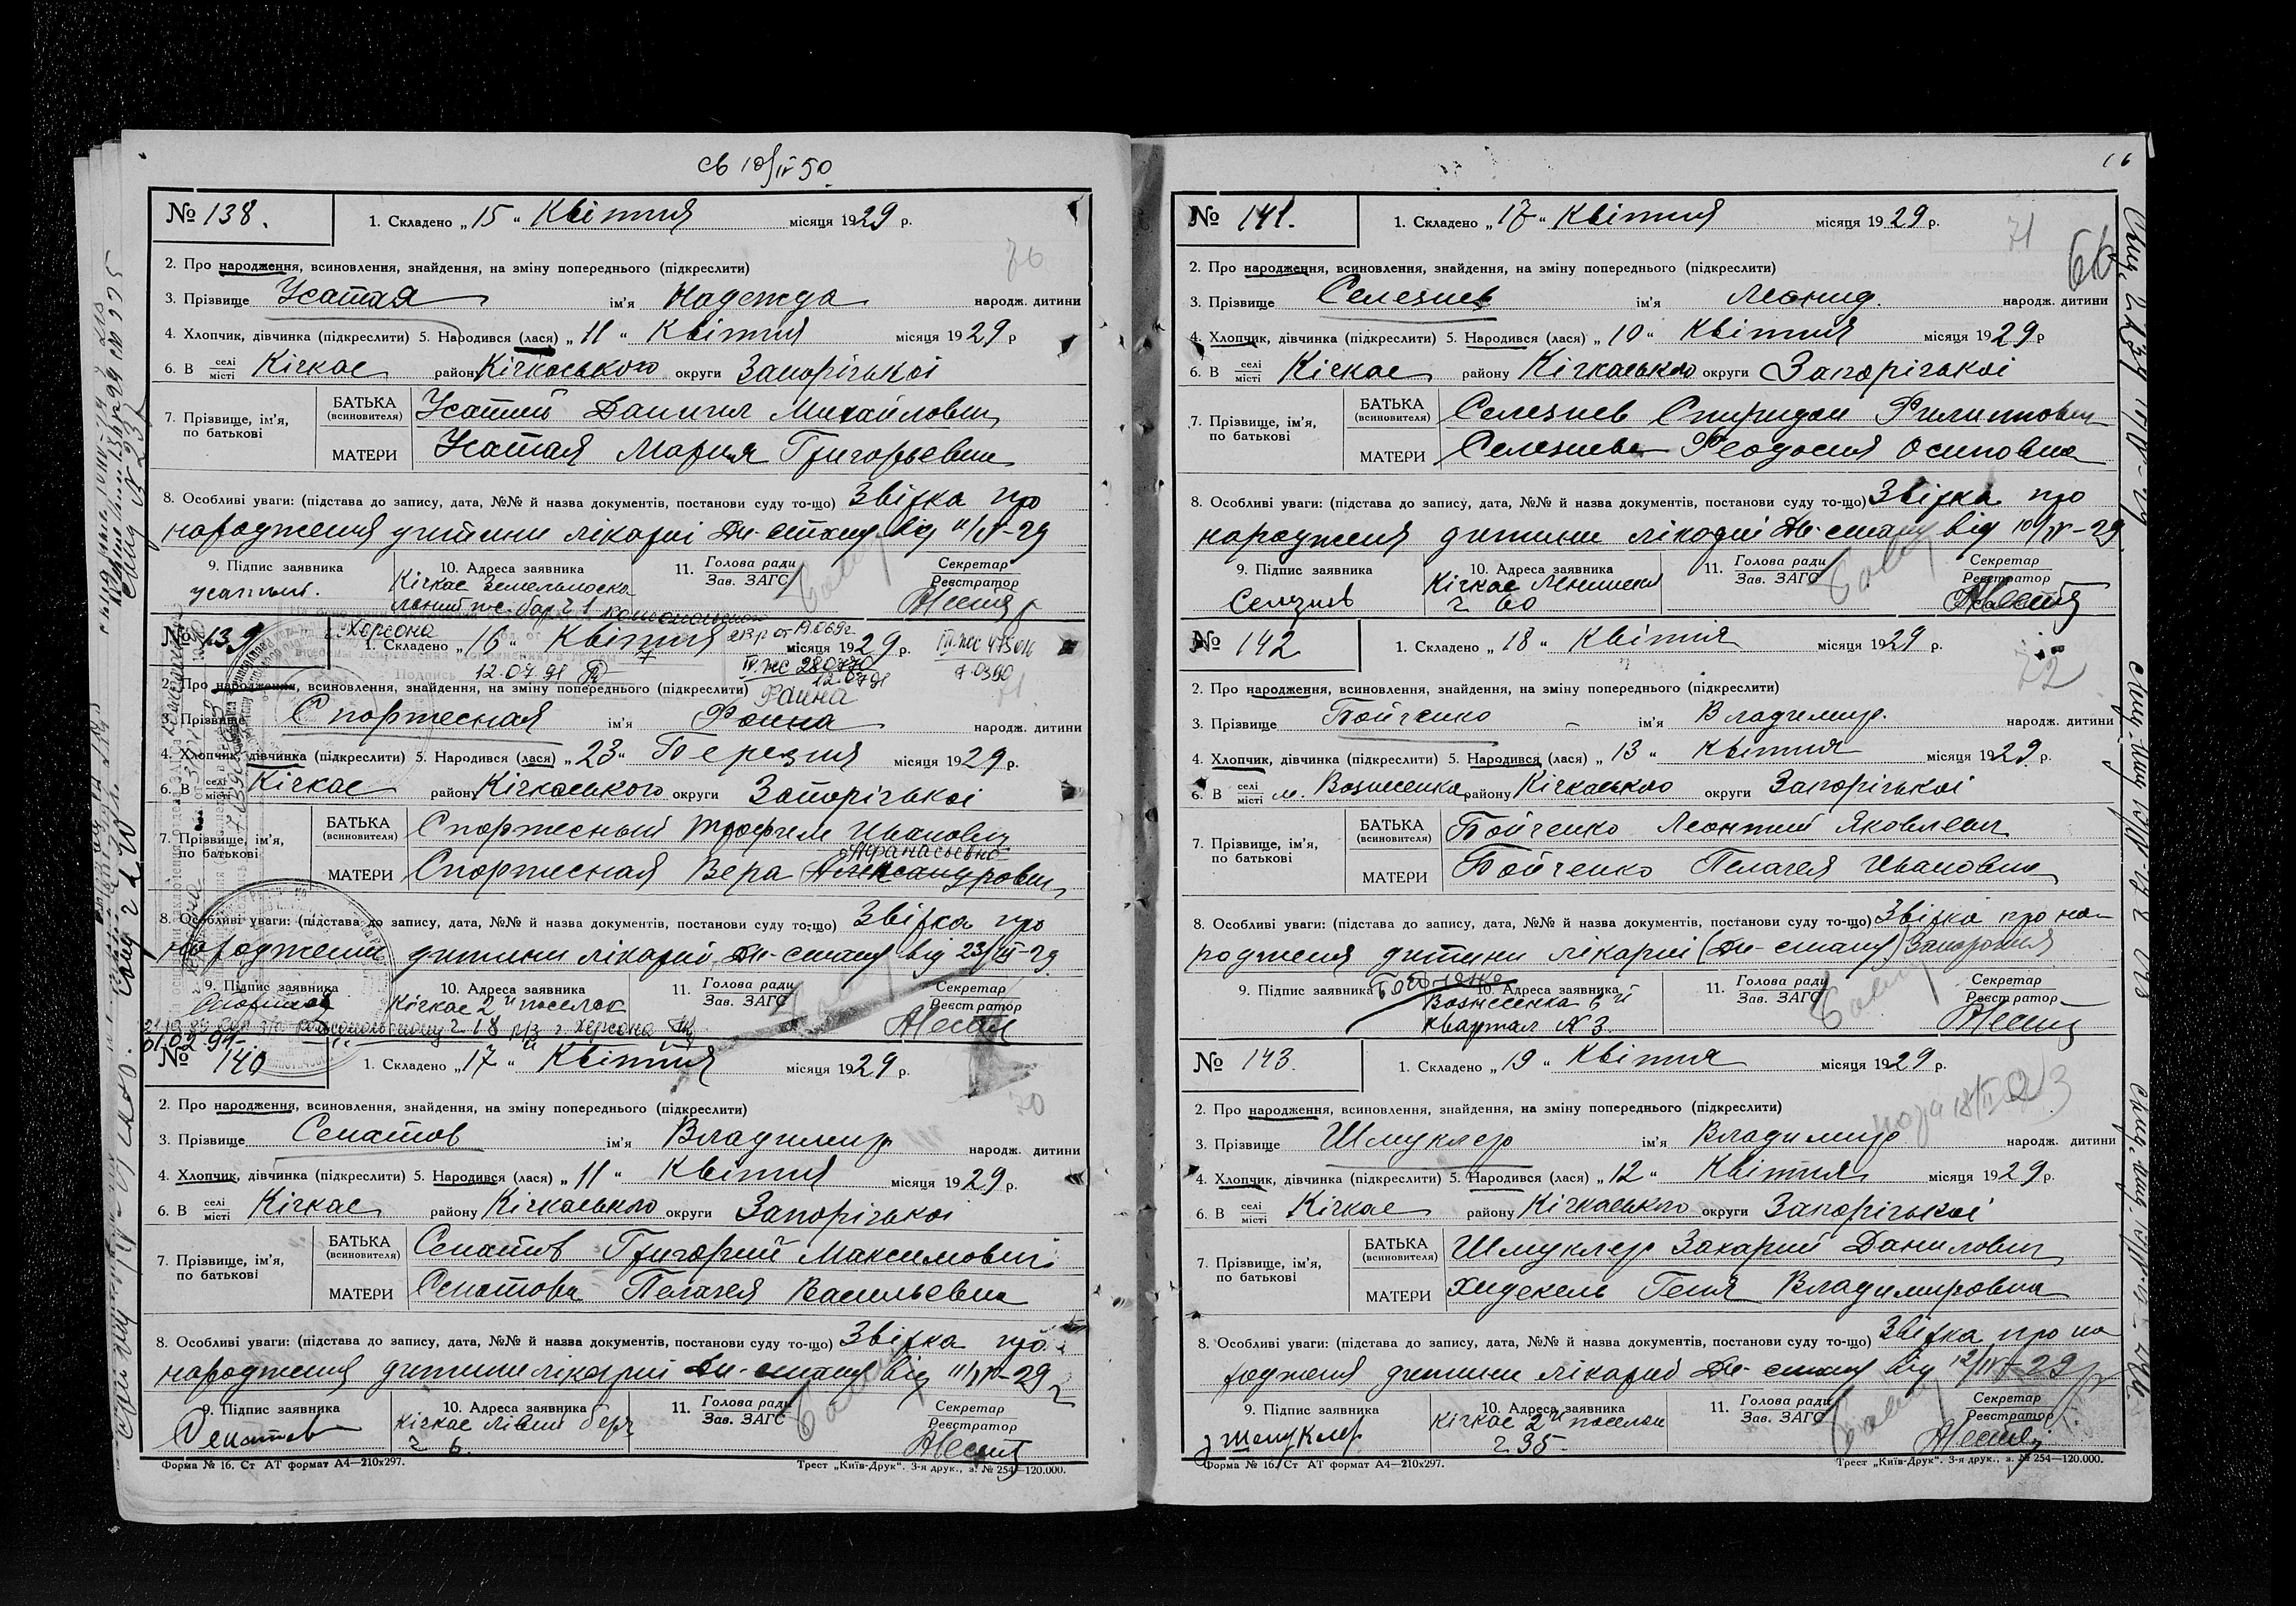 св 18/IV 50
№ 138. 1. Складено „15“ Квітня місяця 1929 р.
2. Про народження, всиновлення, знайдення, на зміну попереднього (підкреслити)
76
3. Прізвище Усатая ім'я Надежда народж. дитини
4. Хлопчик, дівчинка (підкреслити) 5. Народився (лася) „11“ Квітня місяця 1929 р
6. В селі місті Кічкас район Кічкаського округи Запорізької
7. Прізвище, ім'я, по батькові БАТЬКА (всиновителя) Усатий Даниил Михайлович
МАТЕРИ Усатая Мария Григорьевна
8. Особливі уваги: (підстава до запису, дата, №№ й назва документів, постанови суду то-що) Звістка про
народження дитини лікарні Дн-стану від 11/IV-29
9. Підпис заявника Усатый. 10. Адреса заявника Кічкас 11. Голова ради Зав. ЗАГС Секретар Реєстратор
№ 139 1. Складено „16“ Квітня місяця 1929 р.
Херсона
12.07.91
2. Про народження, всиновлення, знайдення, на зміну попереднього (підкреслити)
Фаина
3. Прізвище Спортесная ім'я Фаина народж. дитини
4. Хлопчик, дівчинка (підкреслити) 5. Народився (лася) „23“ Березня місяця 1929 р.
6. В селі місті Кічкас району Кічкаського округи Запорізької
7. Прізвище, ім'я, по батькові БАТЬКА (всиновителя) Спортесный Трофим Иванович
Афанасьевна
МАТЕРИ Спортесная Вера Александровна
8. Особливі уваги: (підстава до запису, дата, №№ й назва документів, постанови суду то-що) Звістка про
народження дитини лікарні Дн-стану від 23/III-29
9. Підпис заявника 10. Адреса заявника Кічкас 2й поселок 11. Голова ради Зав. ЗАГС Секретар Реєстратор
№ 140 1. Складено „17“ Квітня місяця 1929 р.
2. Про народження, всиновлення, знайдення, на зміну попереднього (підкреслити)
3. Прізвище Сенатов ім'я Владимир народж. дитини
4. Хлопчик, дівчинка (підкреслити) 5. Народився (лася) „11“ Квітня місяця 1929 р.
6. В селі місті Кічкас району Кічкаського округи Запорізької
7. Прізвище, ім'я, по батькові БАТЬКА (всиновителя) Сенатов Григорий Максимович
МАТЕРИ Сенатова Пелагея Васильевна
8. Особливі уваги: (підстава до запису, дата, №№ й назва документів, постанови суду то-що) Звістка про
народження дитини лікарні Дн-стану від 11/IV-29 р
9. Підпис заявника Сенатов 10. Адреса заявника Кічкас лівий берг ч 6. 11. Голова ради Зав. ЗАГС Секретар Реєстратор
Форма № 16. Ст АТ формат А4—210х297. Трест „Київ-Друк“. 3-я друк., з. № 254—120.000.
№ 141. 1. Складено „17“ Квітня місяця 1929 р.
71 66
2. Про народження, всиновлення, знайдення, на зміну попереднього (підкреслити)
3. Прізвище Селезнев ім'я Леонид. народж. дитини
4. Хлопчик, дівчинка (підкреслити) 5. Народився (лася) „10“ Квітня місяця 1929 р
6. В селі місті Кічкас району Кічкаського округи Запорізької
7. Прізвище, ім'я, по батькові БАТЬКА (всиновителя) Селезнев Спиридон Филиппович
МАТЕРИ Селезнева Феодосия Осиповна
8. Особливі уваги: (підстава до запису, дата, №№ й назва документів, постанови суду то-що) Звістка про
народження дитини лікарні Дн-стану від 10/IV-29.
9. Підпис заявника Селезнев 10. Адреса заявника Кічкас Ленинская ч 60 11. Голова ради Зав. ЗАГС Секретар Реєстратор
№ 142 1. Складено „18“ Квітня місяця 1929 р.
72
2. Про народження, всиновлення, знайдення, на зміну попереднього (підкреслити)
3. Прізвище Бойченко ім'я Владимир. народж. дитини
4. Хлопчик, дівчинка (підкреслити) 5. Народився (лася) „13“ Квітня місяця 1929 р.
6. В селі місті м. Вознесенка району Кічкаського округи Запорізької
7. Прізвище, ім'я, по батькові БАТЬКА (всиновителя) Бойченко Леонтий Яковлевич
МАТЕРИ Бойченко Пелагея Ивановна
8. Особливі уваги: (підстава до запису, дата, №№ й назва документів, постанови суду то-що) Звістка про на-
родження дитини лікарні (Дн-стану) Запоріжжя
9. Підпис заявника Бойченко 10. Адреса заявника Вознесенка 6й квартал № 3. 11. Голова ради Зав. ЗАГС Секретар Реєстратор
№ 143. 1. Складено „19“ Квітня місяця 1929 р.
2. Про народження, всиновлення, знайдення, на зміну попереднього (підкреслити)
3. Прізвище Шмуклер ім'я Владимир народж. дитини
4. Хлопчик, дівчинка (підкреслити) 5. Народився (лася) „12“ Квітня місяця 1929 р.
6. В селі місті Кічкас району Кічкаського округи Запорізької
7. Прізвище, ім'я, по батькові БАТЬКА (всиновителя) Шмуклер Захарий Данилович
МАТЕРИ Хидекель Геня Владимировна
8. Особливі уваги: (підстава до запису, дата, №№ й назва документів, постанови суду то-що) Звістка про на
родження дитини лікарні Дн-стану від 12/IV-29 р
9. Підпис заявника Шмуклер 10. Адреса заявника Кічкас 2й поселок ч 35. 11. Голова ради Зав. ЗАГС Секретар Реєстратор
Форма № 16. Ст АТ формат А4—210х297. Трест „Київ-Друк“. 3-я друк., з. № 254—120.000.